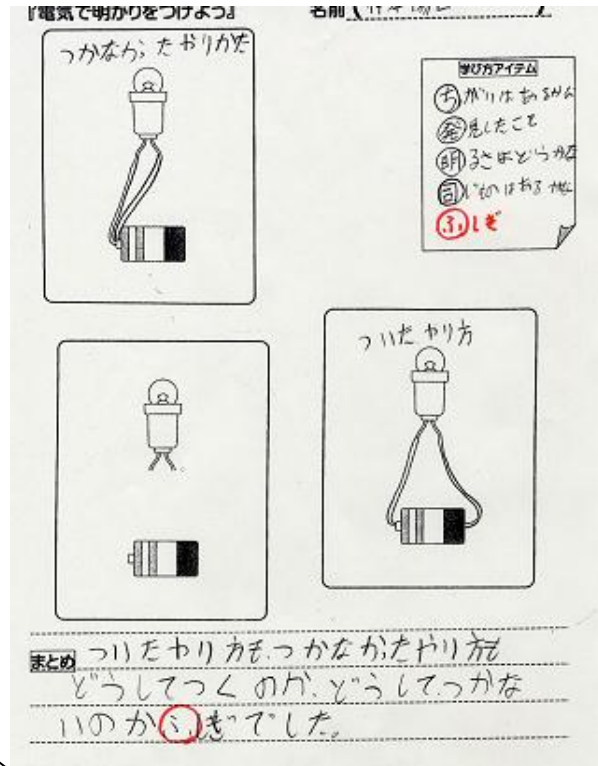 『電気で明かりをつけよう』
名前(
つかなかったやりかた
学び方アイテム
ちがいはあるかな
発見したこと
明るさはどうかな
同じものはあるかな
ふしぎ
ついたやり方
まとめ
ついたやり方も、つかなかったやり方も
どうしてつくのか、どうしてつかな
いのかふしぎでした。